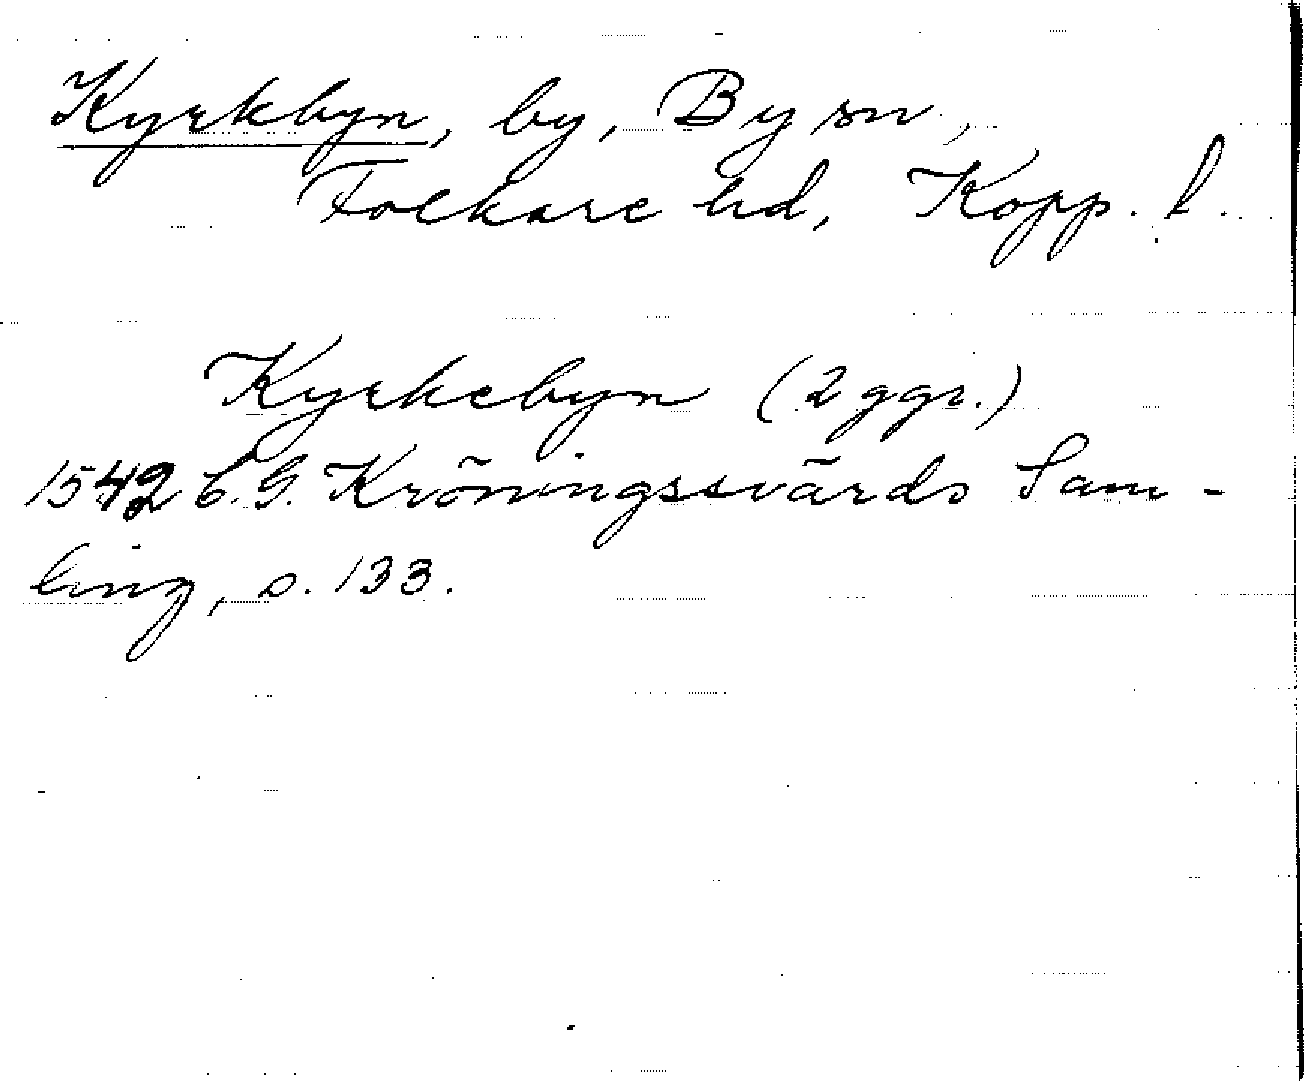 Kyrkbyn, by, By sn,
Folkare hd, Kopp. l.
Kyrkebyn (2 ggr.)
1542 C. G. Kröningssvärds Sam-
ling, s. 133.